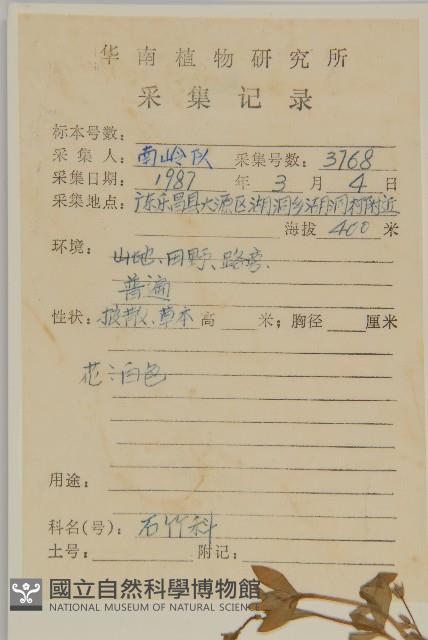 华南植物研究所
采集记录
标本号数：
采集人：南岭队 采集号数：3768
采集日期：1987 年 3 月 4 日
采集地点：广东乐昌县大源区湖洞乡湖洞村附近
海拔 400 米
环境：山地、田野、路旁、
普遍
性状：披散、草本 高 米；胸径 厘米
花：白色
用途：
科名(号)：石竹科
土号： 附记：
國立自然科學博物館
NATIONAL MUSEUM OF NATURAL SCIENCE